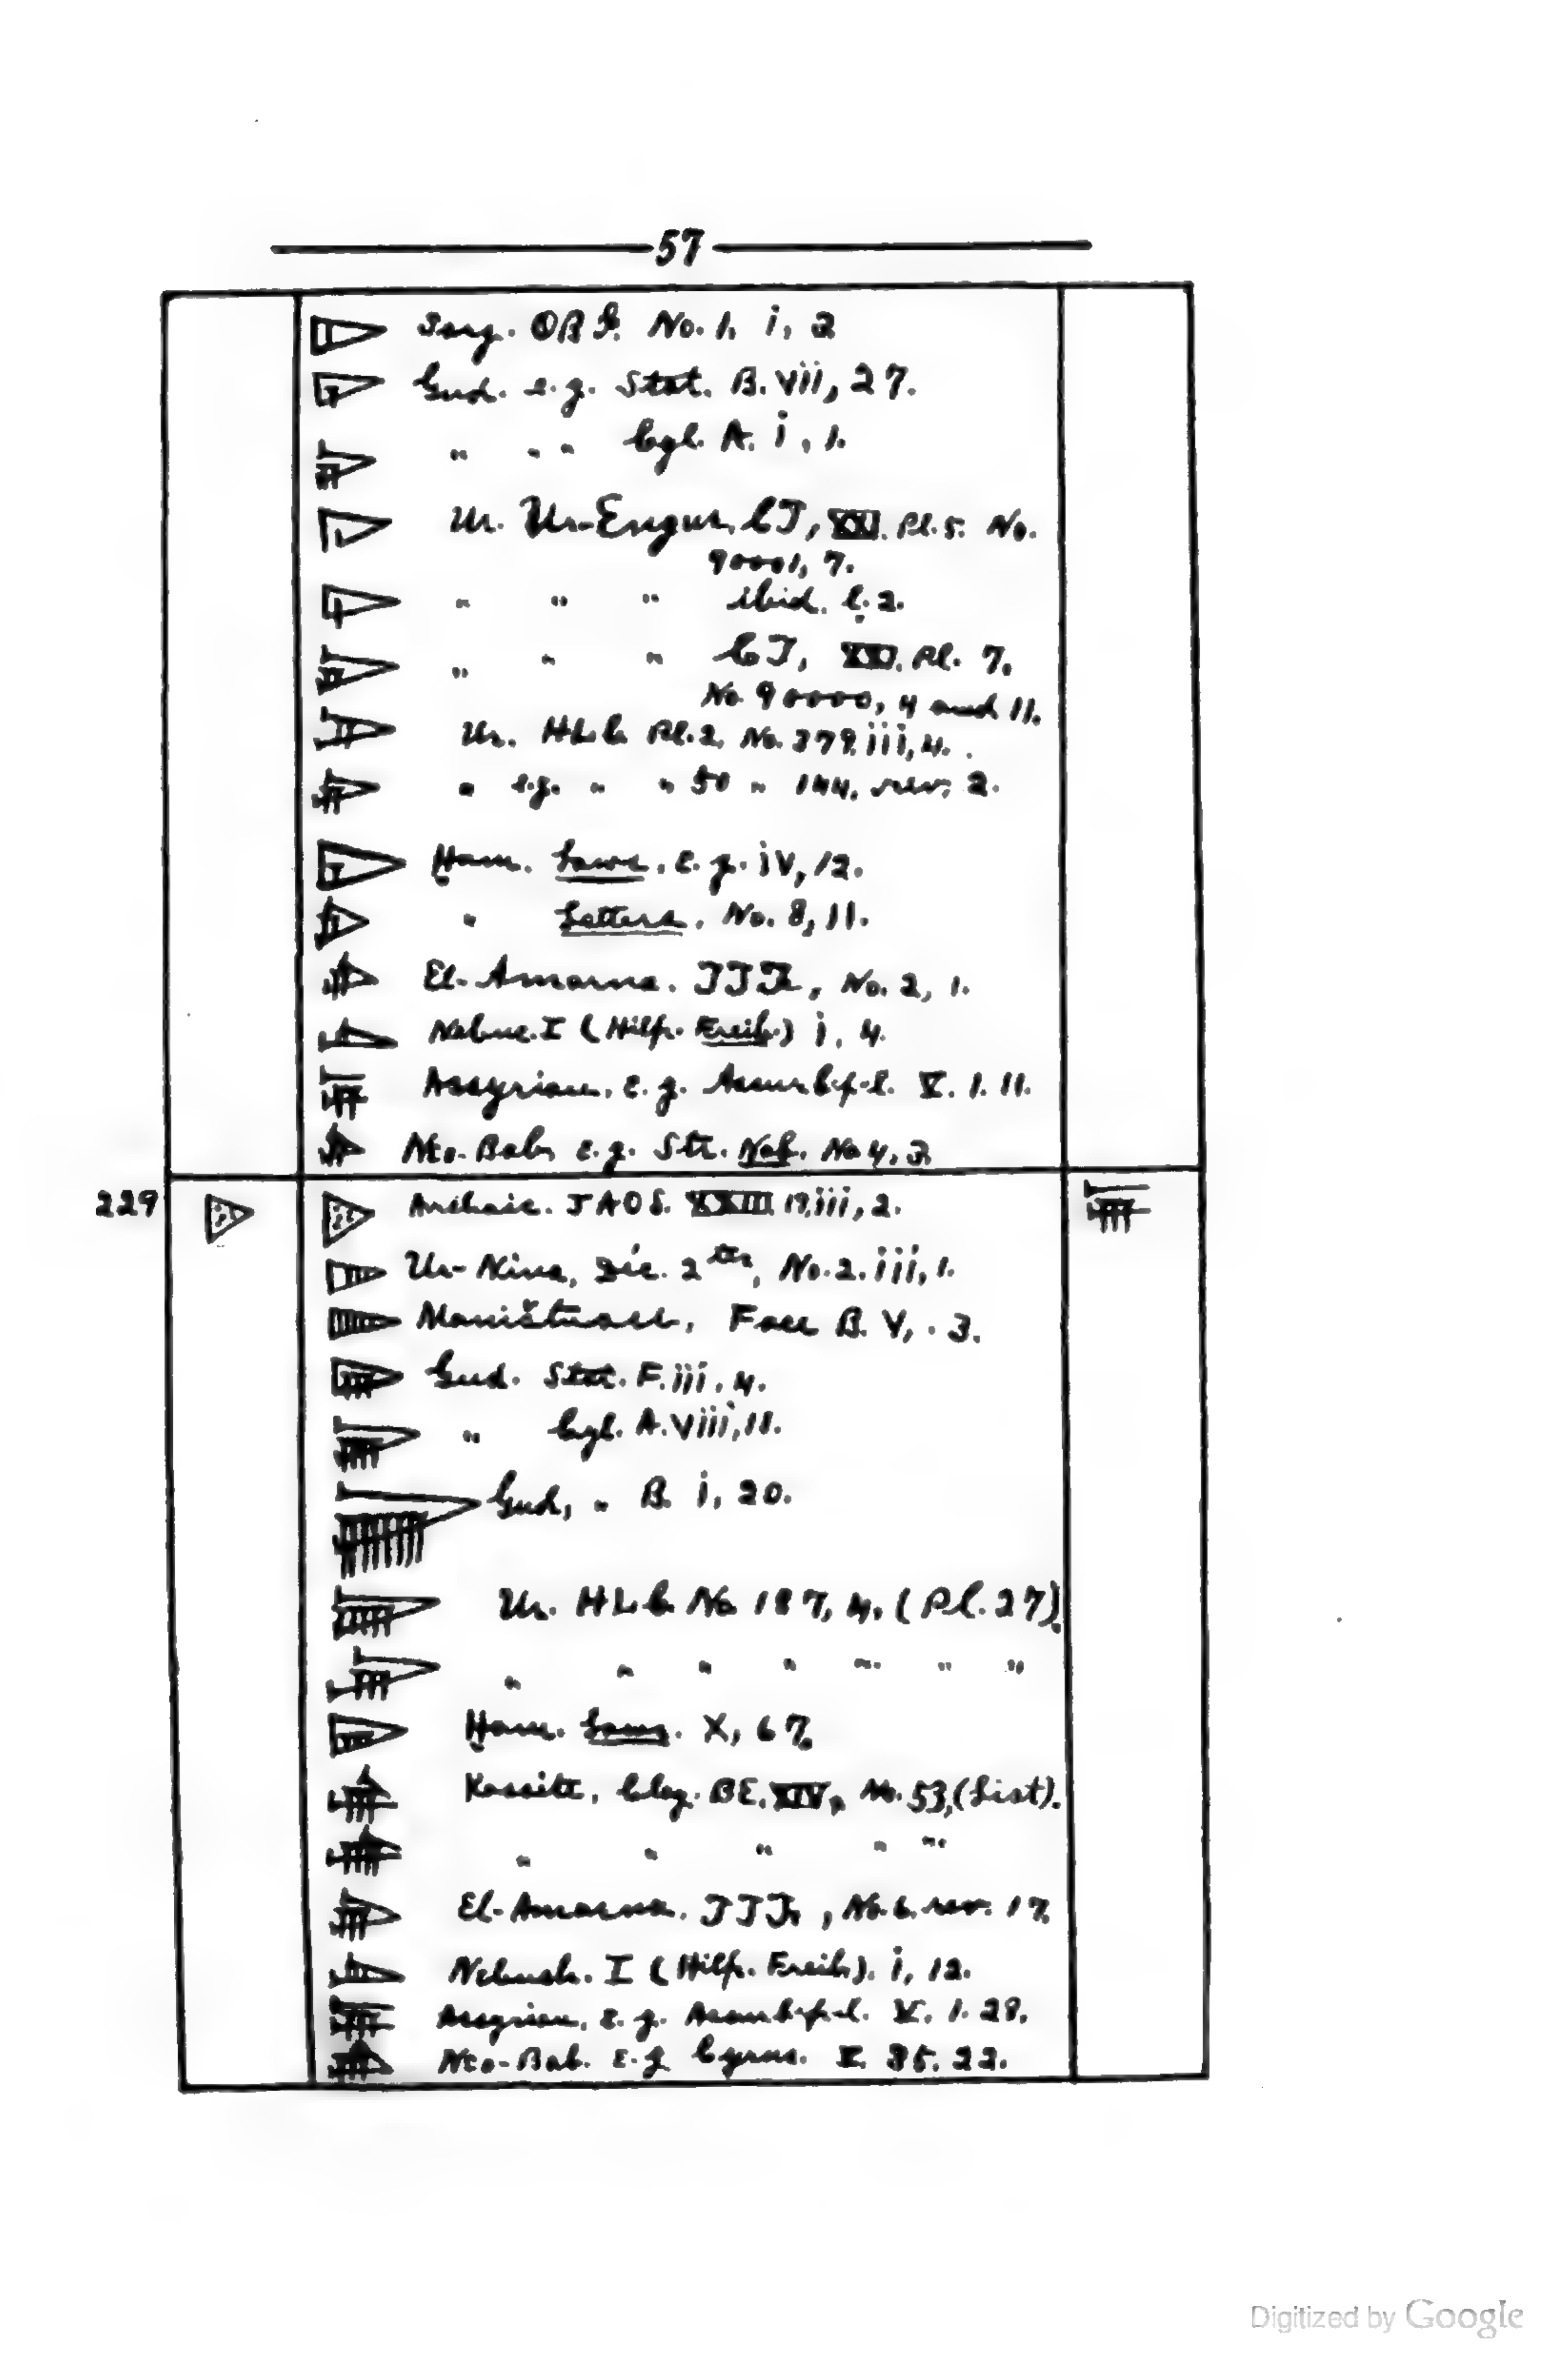 57
Sarg. OBI. No. 1. i, 2
Gud. e.g. Stat. B. vii, 27.
" " " Cyl. A. i, 1.
Ur. Ur-Engur, CT, XXI. Pl. 5. No.
90001, 7.
" " " ibid. l. 2.
" " " CT, XXI. Pl. 7.
No. 90000, 4 and 11.
Ur. HLC. Pl. 2, No. 379. iii, 4.
" e.g. " " 50 " 144, rev. 2.
Ḫam. Laws, e.g. iv, 12.
" Letters, No. 8, 11.
El-Amarna. No. 2, 1.
Nebuc. I (Hilp. Freib.) i, 4.
Assyrian, e.g. Asurb-p-l. V. 1. 11.
Neo-Bab. e.g. Str. Nab. No 4, 3
229 Archaic. JAOS. XXIII 19, iii, 2.
Ur-Nina, Déc. 2ter, No. 2. iii, 1.
Maništuall, Face B. V, 3.
Gud. Stat. F. iii, 4.
" Cyl. A. viii, 11.
Gud, " B. i, 20.
Ur. HLC. No. 187, 4, (Pl. 27).
" " " " " " "
Ḫam. Laws. X, 67.
Kassite, Clay. BE. XIV, No. 53, (List).
" " " " "
El-Amarna. No. 6. rev. 17.
Nebuch. I (Hilp. Freib). i, 12.
Assyrian, e.g. Asurb-p-l. V. 1. 28.
Neo-Bab. e.g. Cyrus. V. 35. 22.
Digitized by Google